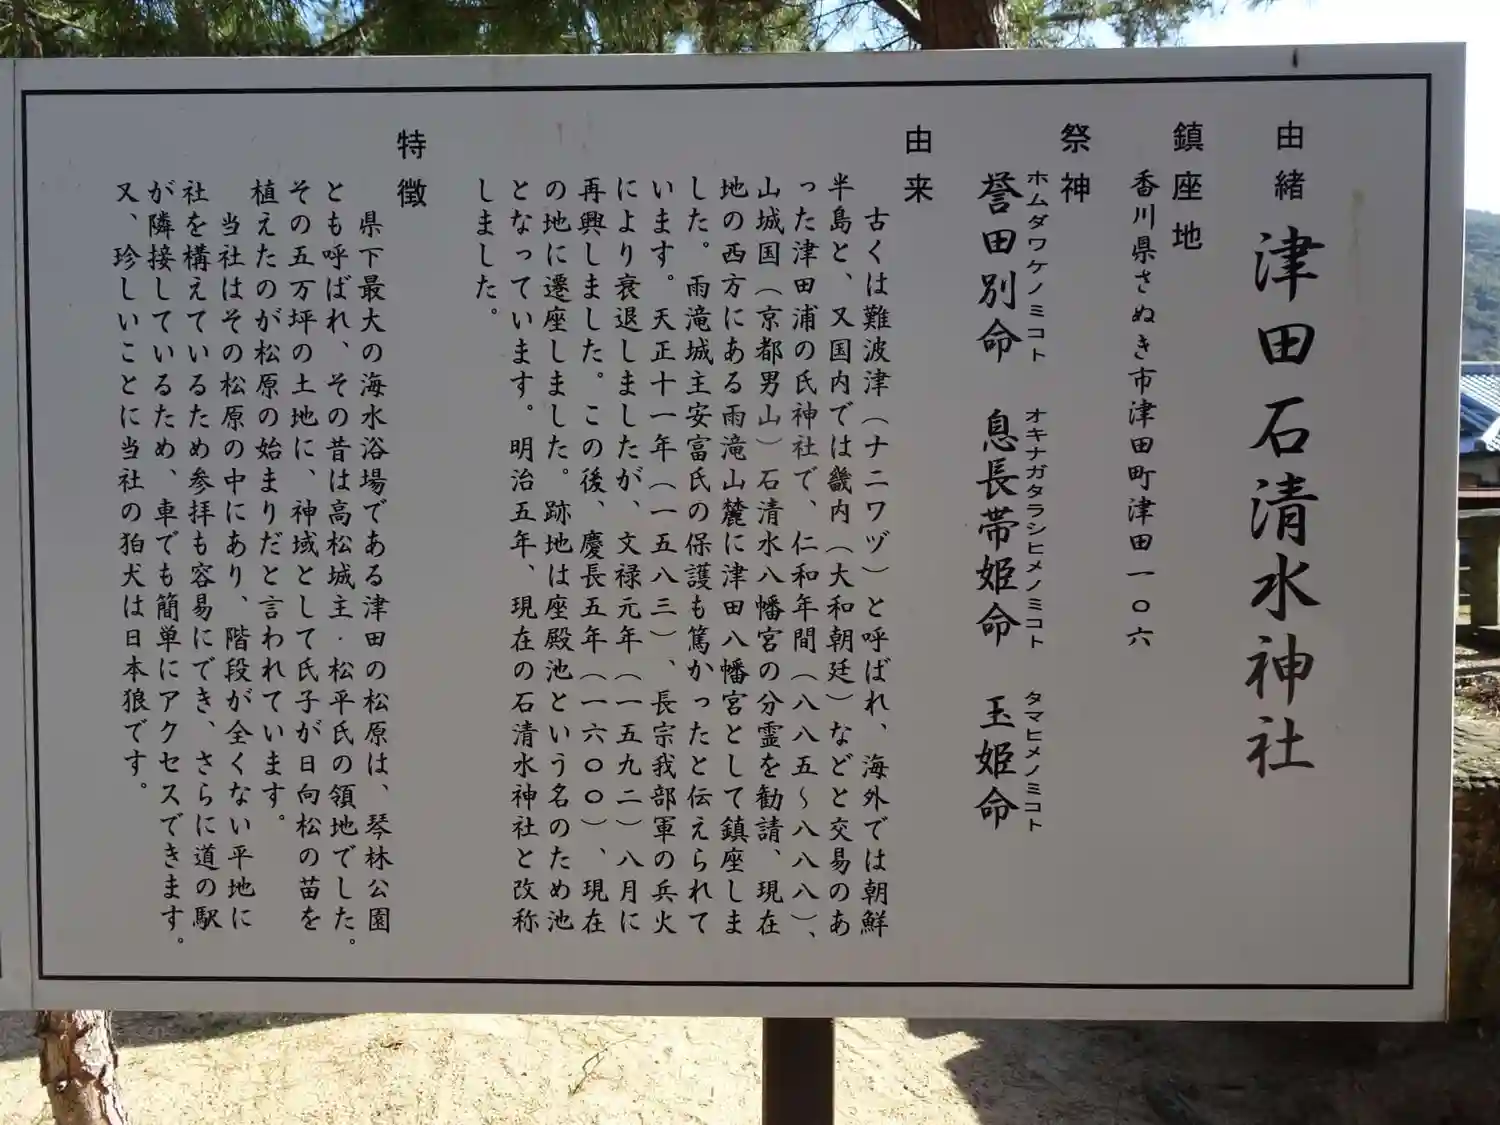 由緒 津田石清水神社
鎮座地
香川県さぬき市津田町津田一〇六
祭神
ホムダワケノミコト オキナガタラシヒメノミコト タマヒメノミコト
誉田別命 息長帯姫命 玉姫命
由来
古くは難波津（ナニワヅ）と呼ばれ、海外では朝鮮
半島と、又国内では畿内（大和朝廷）などと交易のあ
った津田浦の氏神社で、仁和年間（八八五～八八八）、
山城国（京都男山）石清水八幡宮の分霊を勧請、現在
地の西方にある雨滝山麓に津田八幡宮として鎮座しま
した。雨滝城主安富氏の保護も篤かったと伝えられて
います。天正十一年（一五八三）、長宗我部軍の兵火
により衰退しましたが、文禄元年（一五九二）八月に
再興しました。この後、慶長五年（一六〇〇）、現在
の地に遷座しました。跡地は座殿池という名のため池
となっています。明治五年、現在の石清水神社と改称
しました。
特徴
県下最大の海水浴場である津田の松原は、琴林公園
とも呼ばれ、その昔は高松城主・松平氏の領地でした。
その五万坪の土地に、神域として氏子が日向松の苗を
植えたのが松原の始まりだと言われています。
当社はその松原の中にあり、階段が全くない平地に
社を構えているため参拝も容易にでき、さらに道の駅
が隣接しているため、車でも簡単にアクセスできます。
又、珍しいことに当社の狛犬は日本狼です。